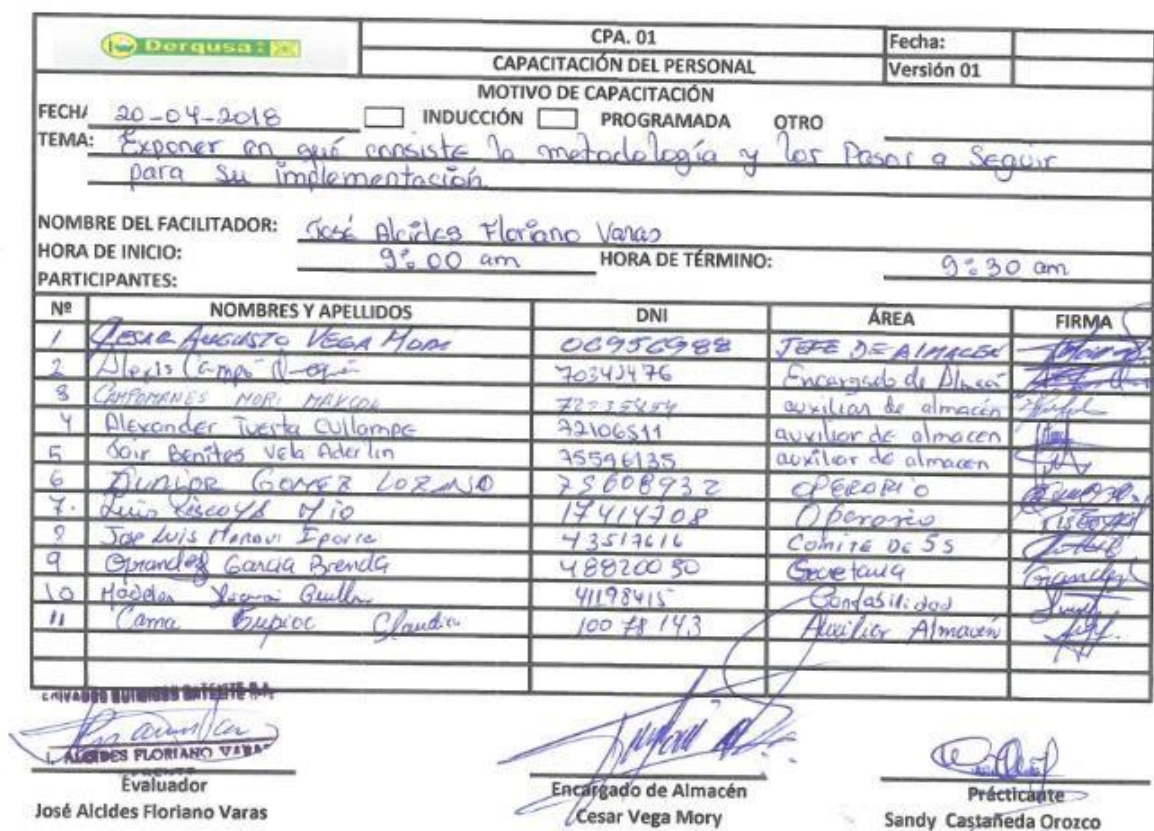 Derqusa
CPA. 01
Fecha:
CAPACITACIÓN DEL PERSONAL
Versión 01
MOTIVO DE CAPACITACIÓN
FECHA 20-04-2018 INDUCCIÓN PROGRAMADA OTRO
TEMA: Exponer en qué consiste la metodología y los Pasos a Seguir
para su implementación.
NOMBRE DEL FACILITADOR: José Alcides Floriano Varas
HORA DE INICIO: 9:00 am HORA DE TÉRMINO: 9:30 am
PARTICIPANTES:
Nº NOMBRES Y APELLIDOS DNI ÁREA FIRMA
1 CESAR AUGUSTO VEGA MORI 06956988 JEFE DE ALMACEN
2 Alexis Campó Encargado de
3 CAMPOMANES MORI auxiliar de almacén
4 Alexander Tuesta Cullampe 72106511 auxiliar de almacen
5 Jair Benites Vela Aderlin 75596135 auxiliar de almacen
6 JUNIOR GOMEZ LOZANO 75608932 OPERARIO
7. Luis 17414708 Operario
8 Jose Luis 43517616 Comite DE 5S
9 Garcia Brenda 48820050 Secretaria
10 41198415 Contabilidad
11 Cama Claudia 10078143 Auxiliar Almacén
ALCIDES FLORIANO VARAS
Evaluador
José Alcides Floriano Varas
Encargado de Almacén
Cesar Vega Mory
Prácticante
Sandy Castañeda Orozco